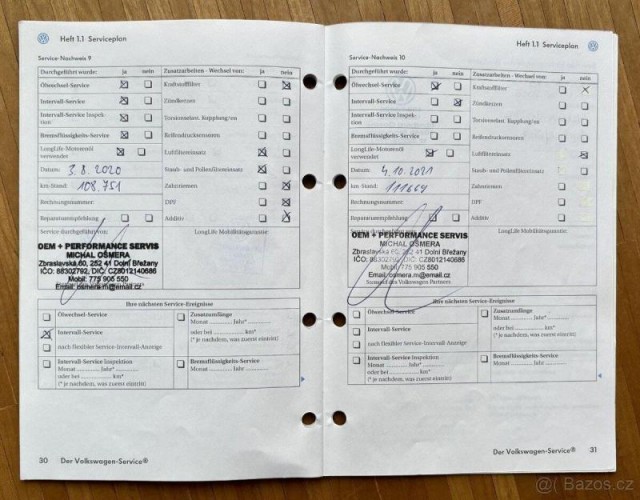 Heft 1.1 Serviceplan
Service-Nachweis 9
Durchgeführt wurde: ja nein Zusatzarbeiten - Wechsel von: ja nein
Ölwechsel-Service Kraftstofffilter
Intervall-Service Zündkerzen
Intervall-Service Inspek-
tion
Bremsflüssigkeits-Service Reifendruckerneu
LongLife-Motorenöl
verwendet
Luftfiltereinsatz
Datum: 3.8.2020 Staub- und Pollenfiltereinsatz
km-Stand: 108.751 Zahnriemen
Rechnungsnummer: DPF
Reparaturempfehlung Additiv
Service durchgeführt von: LongLife Mobilitätsgarantie:
OEM + PERFORMANCE SERVIS
MICHAL OŠMERA
Zbraslavská 60, 252 41 Dolní Břežany
IČO: 88302792, DIČ: CZ8012140686
Mobil: 775 905 550
Email: osmera.m@email.cz
Ihre nächsten Service-Ereignisse
Ölwechsel-Service Zusatzumfänge
Monat Jahr*
Intervall-Service oder bei km*
nach flexibler Service-Intervall-Anzeige (* je nachdem, was zuerst eintritt)
Intervall-Service Inspektion Bremsflüssigkeits-Service
Monat Jahr* Monat Jahr
oder bei km*
(* je nachdem, was zuerst eintritt)
30 Der Volkswagen-Service®
Heft 1.1 Serviceplan
Service-Nachweis 10
Durchgeführt wurde: ja nein Zusatzarbeiten - Wechsel von: ja nein
Ölwechsel-Service Kraftstofffilter
Intervall-Service Zündkerzen
Intervall-Service Inspek-
tion
Bremsflüssigkeits-Service
LongLife-Motorenöl
verwendet
Luftfiltereinsatz
Datum: 4.10.2021 Staub- und Pollenfiltereinsatz
km-Stand: 111664 Zahnriemen
Rechnungsnummer: DPF
Reparaturempfehlung Additiv
Service durchgeführt von: LongLife Mobilitätsgarantie:
OEM + PERFORMANCE SERVIS
MICHAL OŠMERA
Zbraslavská 60, 252 41 Dolní Břežany
IČO: 88302792, DIČ: CZ8012140686
Mobil: 775 905 550
Email: osmera.m@email.cz
Volkswagen Partners
Ihre nächsten Service-Ereignisse
Ölwechsel-Service Zusatzumfänge
Monat Jahr*
Intervall-Service oder bei km*
nach flexibler Service-Intervall-Anzeige (* je nachdem, was zuerst eintritt)
Intervall-Service Inspektion Bremsflüssigkeits-Service
Monat Jahr* Monat Jahr
oder bei km*
(* je nachdem, was zuerst eintritt)
Der Volkswagen-Service® 31
Bazos.cz